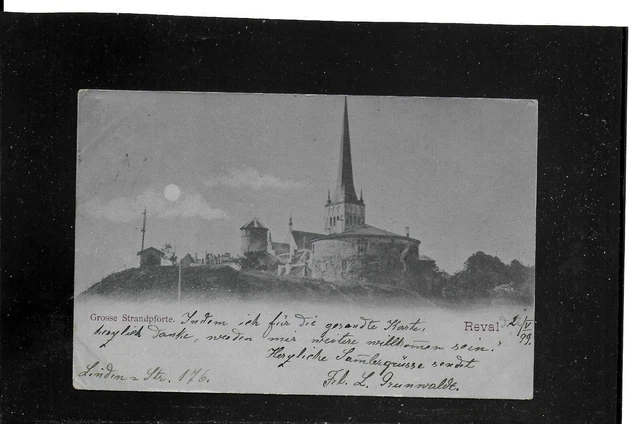 Grosse Strandpforte. Indem ich für die gesandte Karte,
Reval d. 2/V 99.
herzlich danke, werden mir weitere willkommen sein.
Herzliche Samlergrüsse sendet
Linden-Str. 176.
Frl. L. Grunwalde.